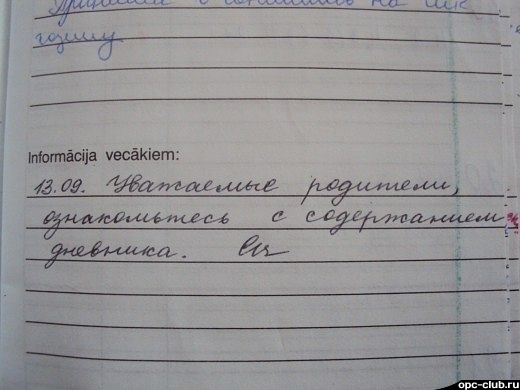 на шк
годину
Informācija vecākiem:
13.09. Уважаемые родители,
ознакомьтесь с содержанием
дневника.
opc-club.ru